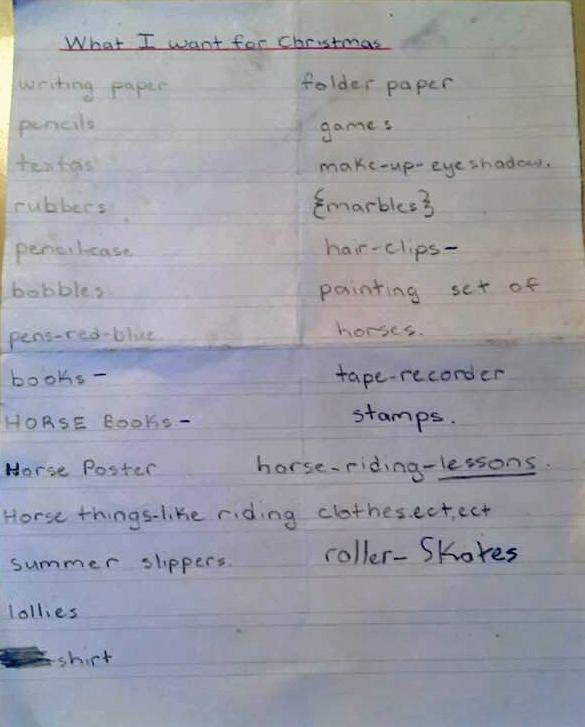 What I want for Christmas
writing paper folder paper
pencils games
textas make-up-eyeshadow.
rubbers {marbles}
pencil-case hair-clips-
bobbles painting set of
pens-red-blue. horses.
books- tape-recorder
HORSE BOOKS- stamps.
Horse Poster horse-riding-lessons.
Horse things-like riding clothes.ect,ect
summer slippers. roller-Skates
lollies
shirt